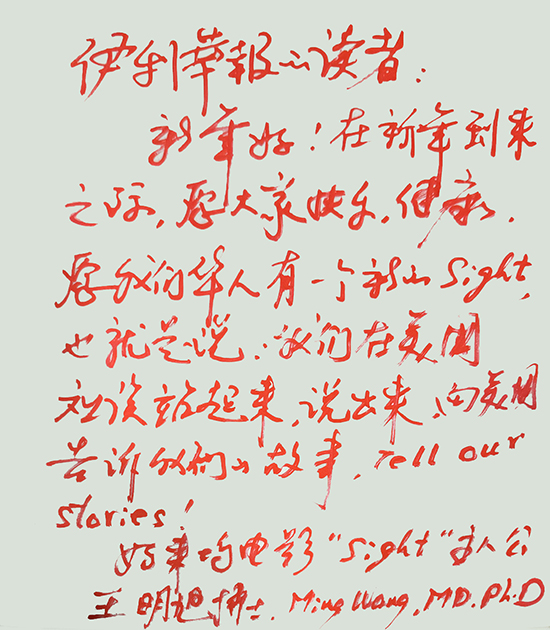 伊利華報的读者:
新年好!在新年到来
之际,愿大家快乐,健康,
愿我们华人有一个新的Sight,
也就是说:我们在美国
应该站起来,说出来,向美国
告诉我们的故事,Tell our
stories!
好莱坞电影"Sight"主人公
王明旭博士, Ming Wang, MD.Ph.D